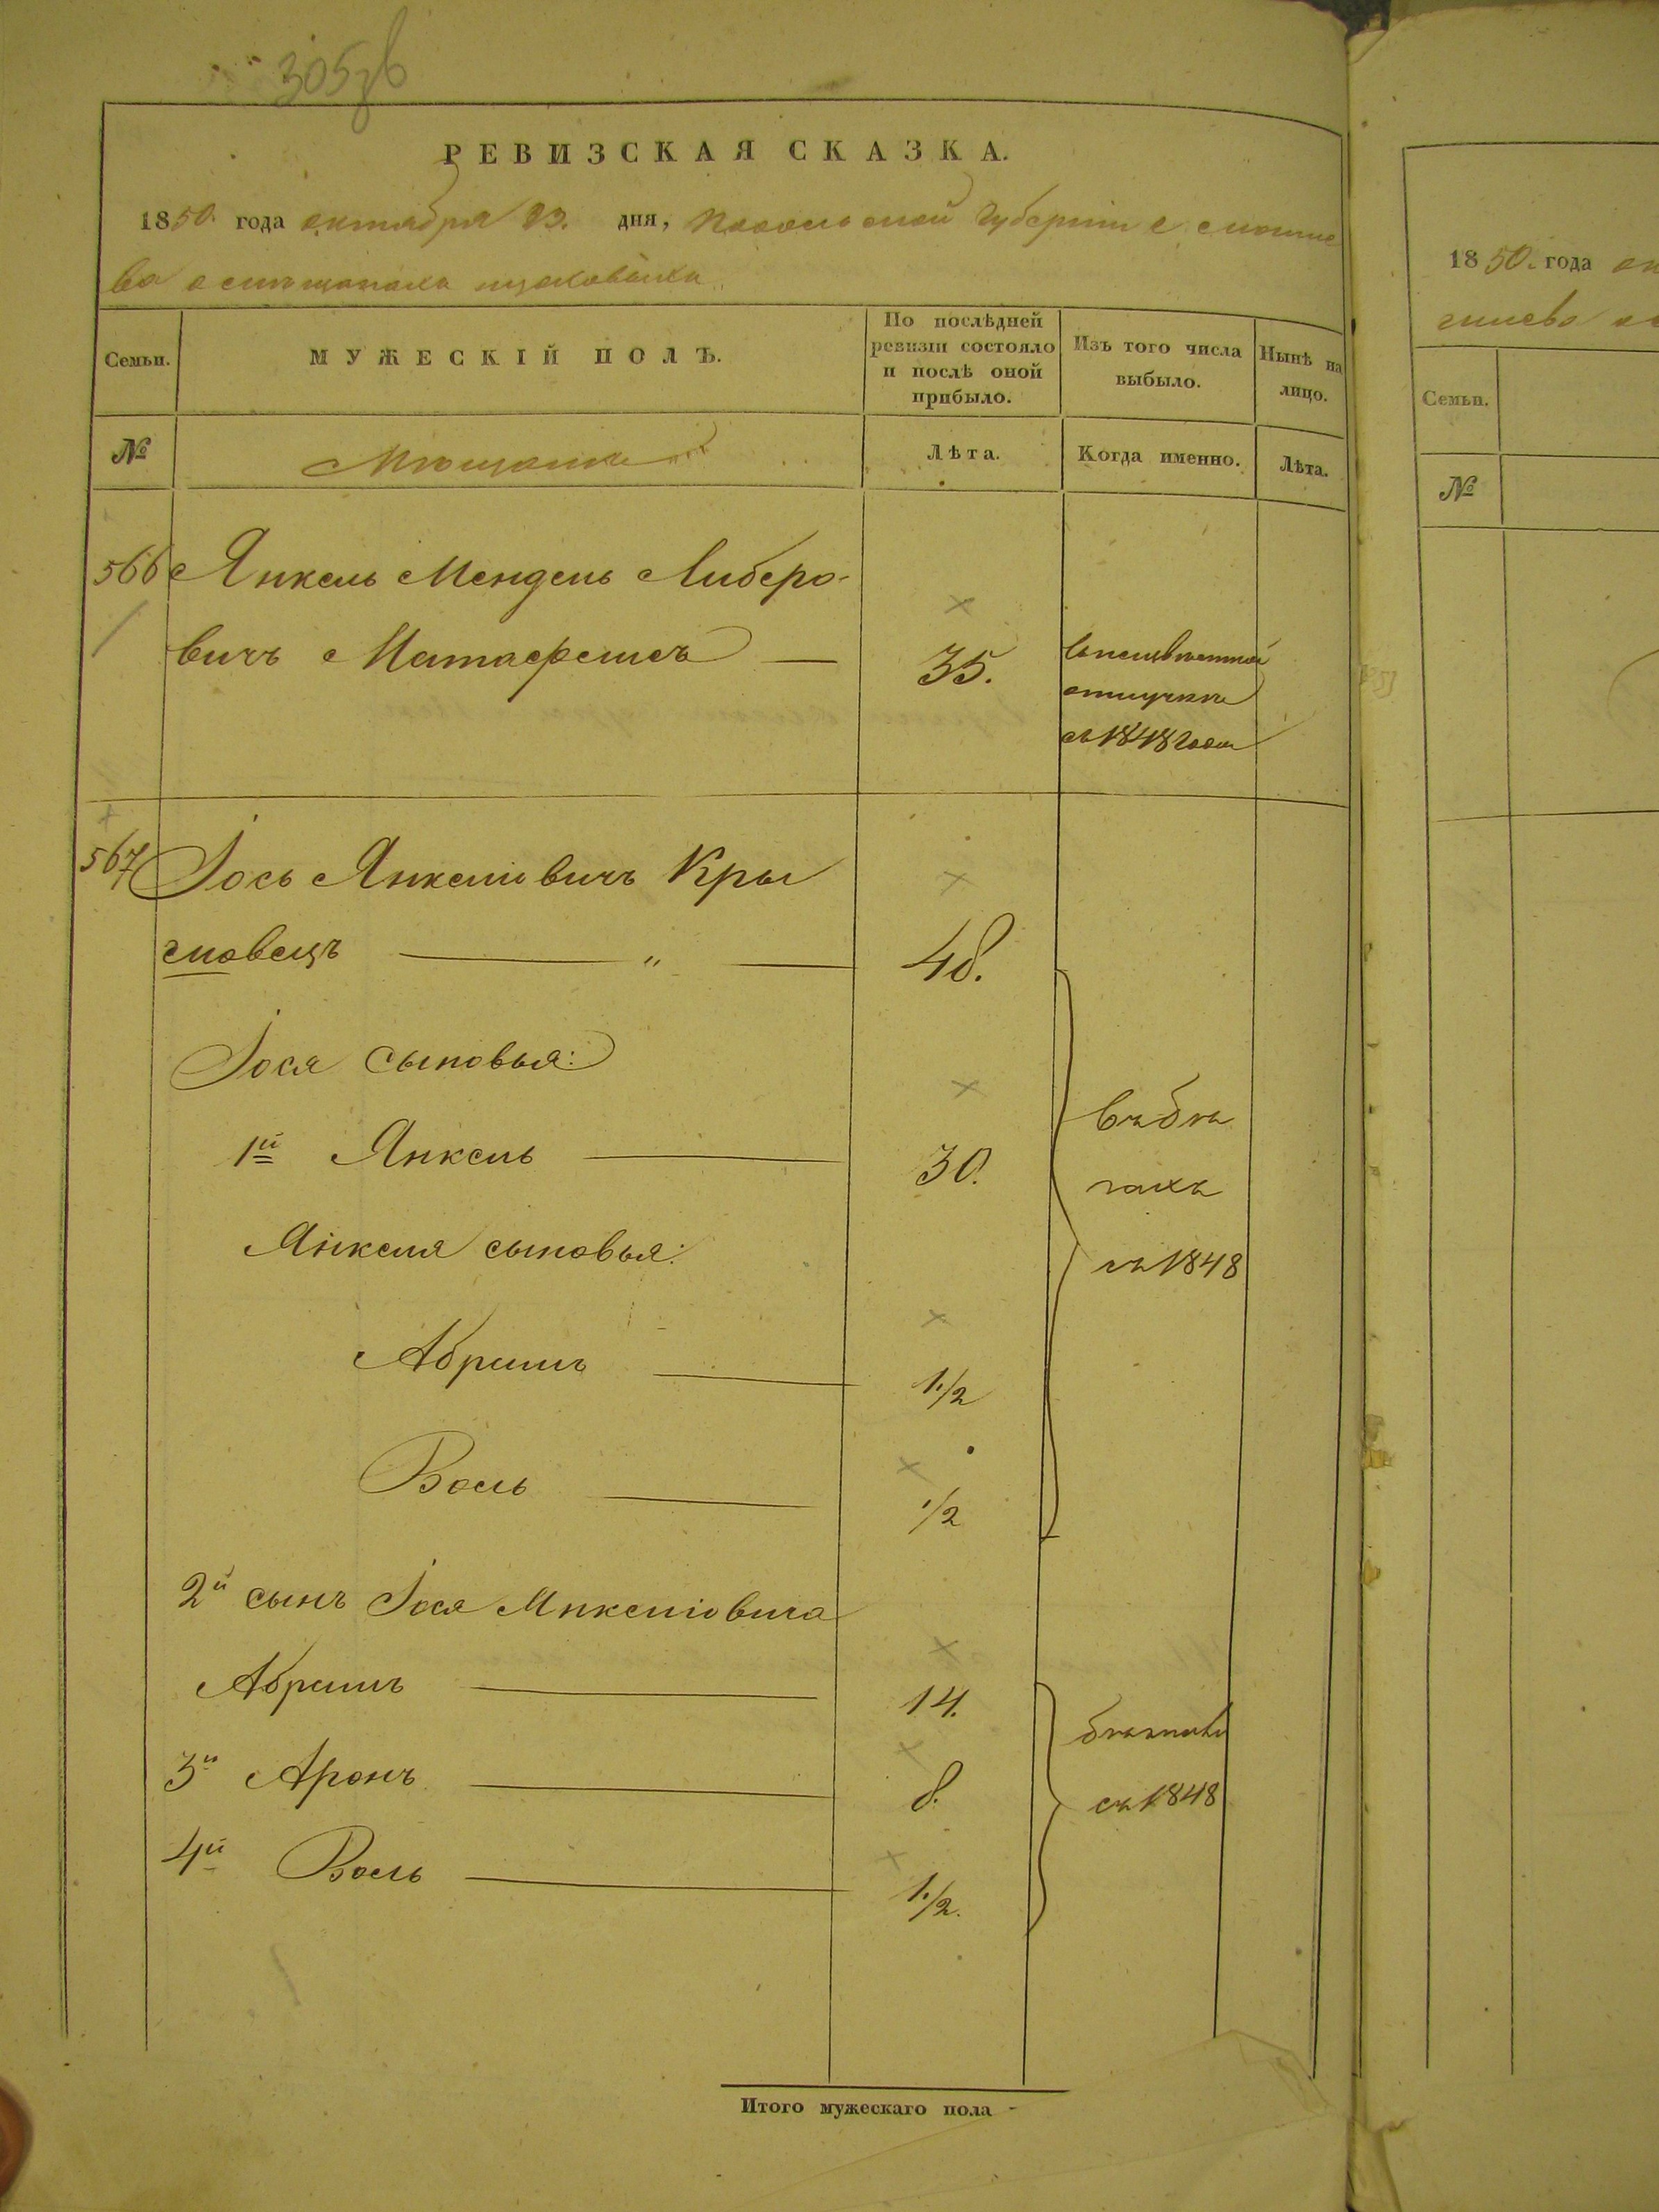 РЕВИЗСКАЯ СКАЗКА.
1850. года октября 23. дня, Подольской Губернии
ва о мещанахъ
Семьи.
МУЖЕСКІЙ ПОЛЪ.
По послѣдней ревизіи состояло и послѣ оной прибыло.
Изъ того числа выбыло.
Нынѣ на лицо.
№
Мещане
Лѣта.
Когда именно.
Лѣта.
566 Янкель Мендель Либеро-
вичъ 35. в неизвѣстной
отлучкѣ
съ 1848 года
567 Іось Янкелiовичъ Кры
словецъ " 48.
Іося сыновья:
1й Янкель 30.
въ бѣ
гахъ
съ 1848
Янкеля сыновья:
Абрамъ 1 1/2
Воль 1/2
2й сынъ Іося Янкелiовича
Абрамъ 14.
3й Аронъ 8.
съ 1848
4й Воль 1 1/2.
Итого мужескаго пола
1850. года
Семьи.
№